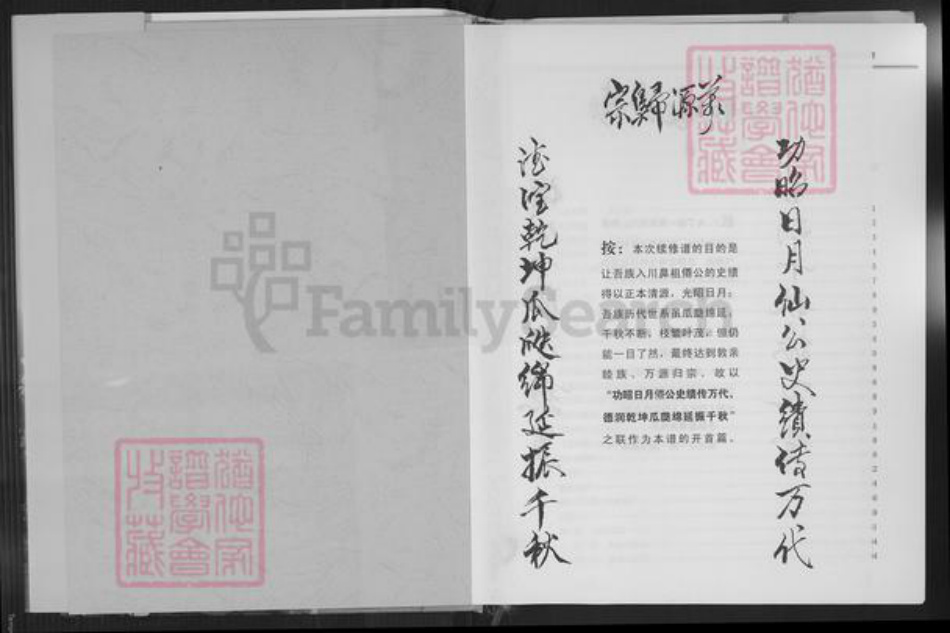 功昭日月仙公史绩传万代
万源歸宗
德润乾坤瓜瓞绵延振千秋
按：本次续修谱的目的是
让吾族入川鼻祖僊公的史绩
得以正本清源，光昭日月；
吾族历代世系虽瓜瓞绵延，
千秋不断，枝繁叶茂，但仍
能一目了然，最终达到敦亲
睦族、万源归宗。故以
“功昭日月僊公史绩传万代，
德润乾坤瓜瓞绵延振千秋”
之联作为本谱的开首篇。
FamilySearch
1